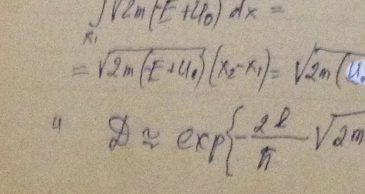 ∫x₁ √2m(-E+U₀) dx =
= √2m(-E+U₀) (x₂-x₁) = √2m(U₀
4 D ≈ exp{-2l/ħ √2m